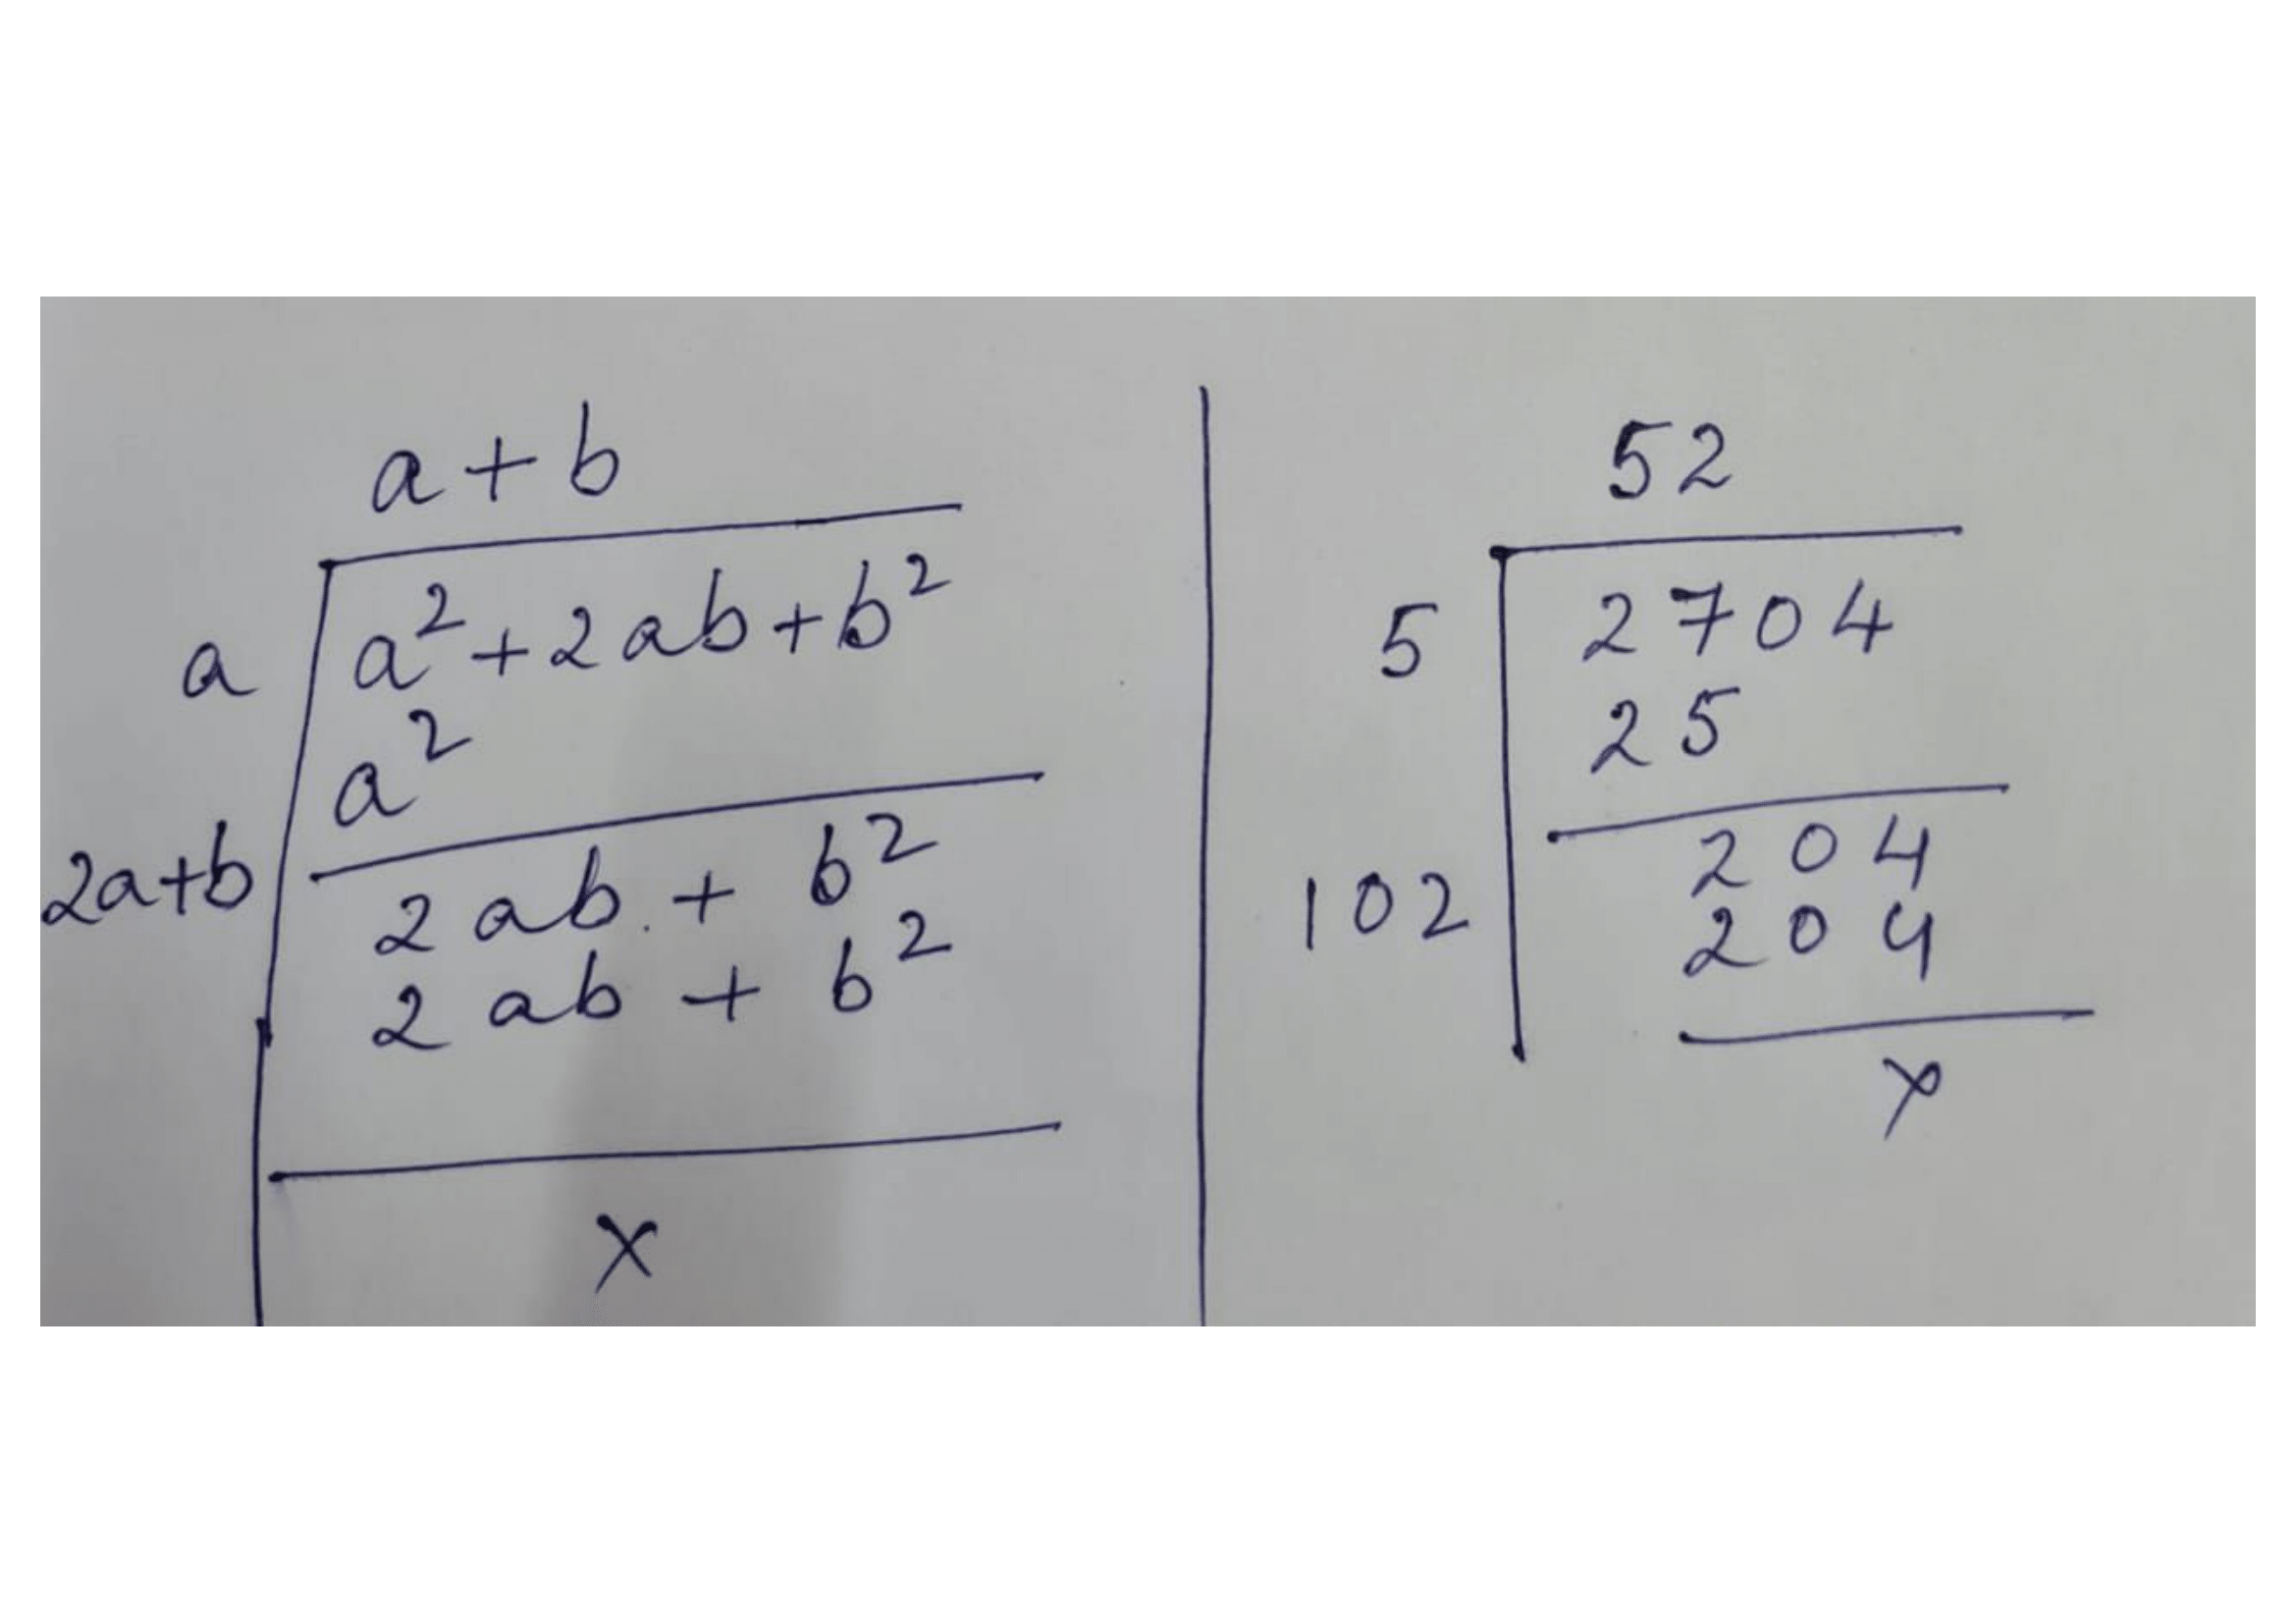 a+b
a a²+2ab+b²
a²
2a+b 2ab + b²
2ab + b²
x
52
5 2704
25
102 204
204
x